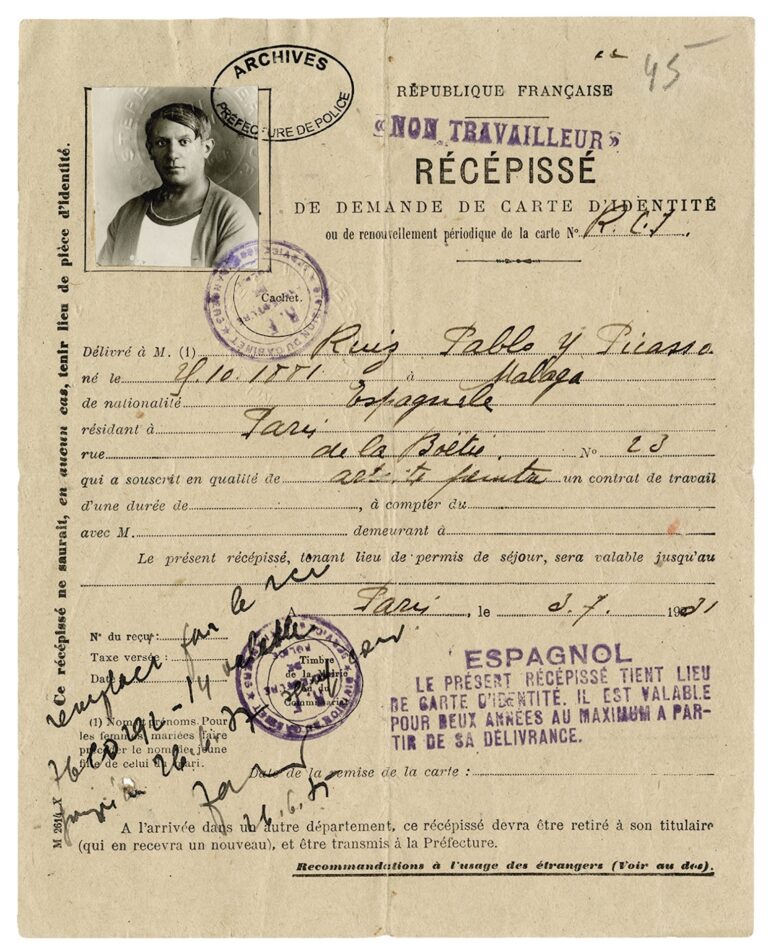 45
ARCHIVES
PRÉFECTURE DE POLICE
RÉPUBLIQUE FRANÇAISE
«NON TRAVAILLEUR»
RÉCÉPISSÉ
DE DEMANDE DE CARTE D'IDENTITÉ
ou de renouvellement périodique de la carte No R.C.I.
Cachet.
Délivré à M. (1) Ruiz Pablo y Picasso
né le 10.1881 à Malaga
de nationalité Espagnole
résidant à Paris
rue de la Boétie No 23
qui a souscrit en qualité de artiste peintre un contrat de travail
d'une durée de, à compter du
avec M. demeurant à
Le présent récépissé, tenant lieu de permis de séjour, sera valable jusqu'au
A Paris, le 3.7. 1931
No du reçu:
Taxe versée:
Date
Timbre
de la Mairie
ou du
Commissariat
ESPAGNOL
LE PRÉSENT RÉCÉPISSÉ TIENT LIEU
DE CARTE D'IDENTITÉ. IL EST VALABLE
POUR DEUX ANNÉES AU MAXIMUM A PAR-
TIR DE SA DÉLIVRANCE.
(1) Noms, prénoms. Pour
les femmes mariées faire
précéder le nom de jeune
fille de celui du mari.
Date de la remise de la carte :
A l'arrivée dans un autre département, ce récépissé devra être retiré à son titulaire
(qui en recevra un nouveau), et être transmis à la Préfecture.
Recommandations à l'usage des étrangers (Voir au dos).
Ce récépissé ne saurait, en aucun cas, tenir lieu de pièce d'identité.
M 2614. X